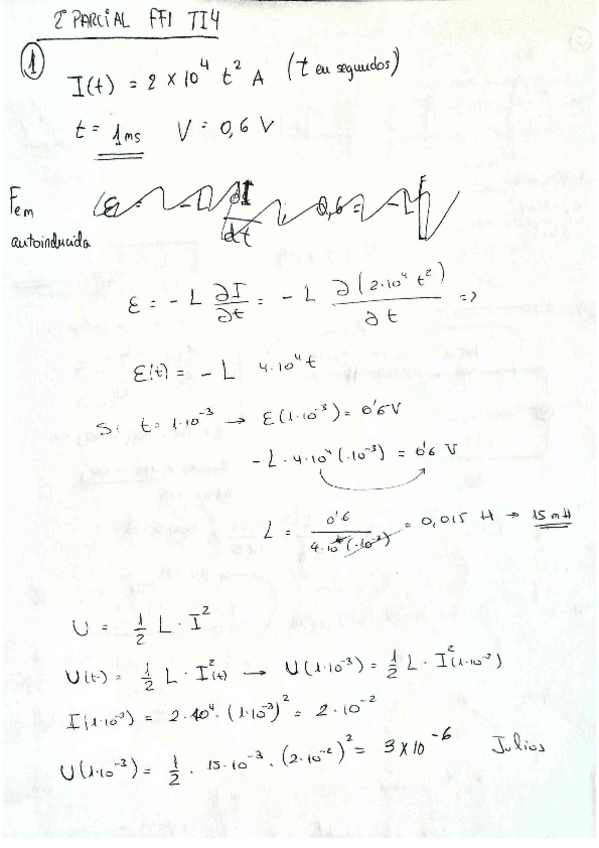 2º PARCIAL FFI TI4
① I(t) = 2 × 10⁴ t² A (t en segundos)
t = 1ms V = 0,6 V
Fem autoinducida
ε = - L ∂I/∂t = - L ∂(2·10⁴ t²)/∂t =>
ε(t) = - L 4·10⁴t
Si t = 1·10⁻³ → ε(1·10⁻³) = 0'6V
- L · 4·10⁴(·10⁻³) = 0'6 V
L = 0'6 / 4·10⁴(·10⁻³) = 0,015 H → 15 mH
U = 1/2 L · I²
U(t) = 1/2 L · I²(t) → U(1·10⁻³) = 1/2 L · I²(1·10⁻³)
I(1·10⁻³) = 2·10⁴ · (1·10⁻³)² = 2·10⁻²
U(1·10⁻³) = 1/2 · 15·10⁻³ · (2·10⁻²)² = 3×10⁻⁶ Julios